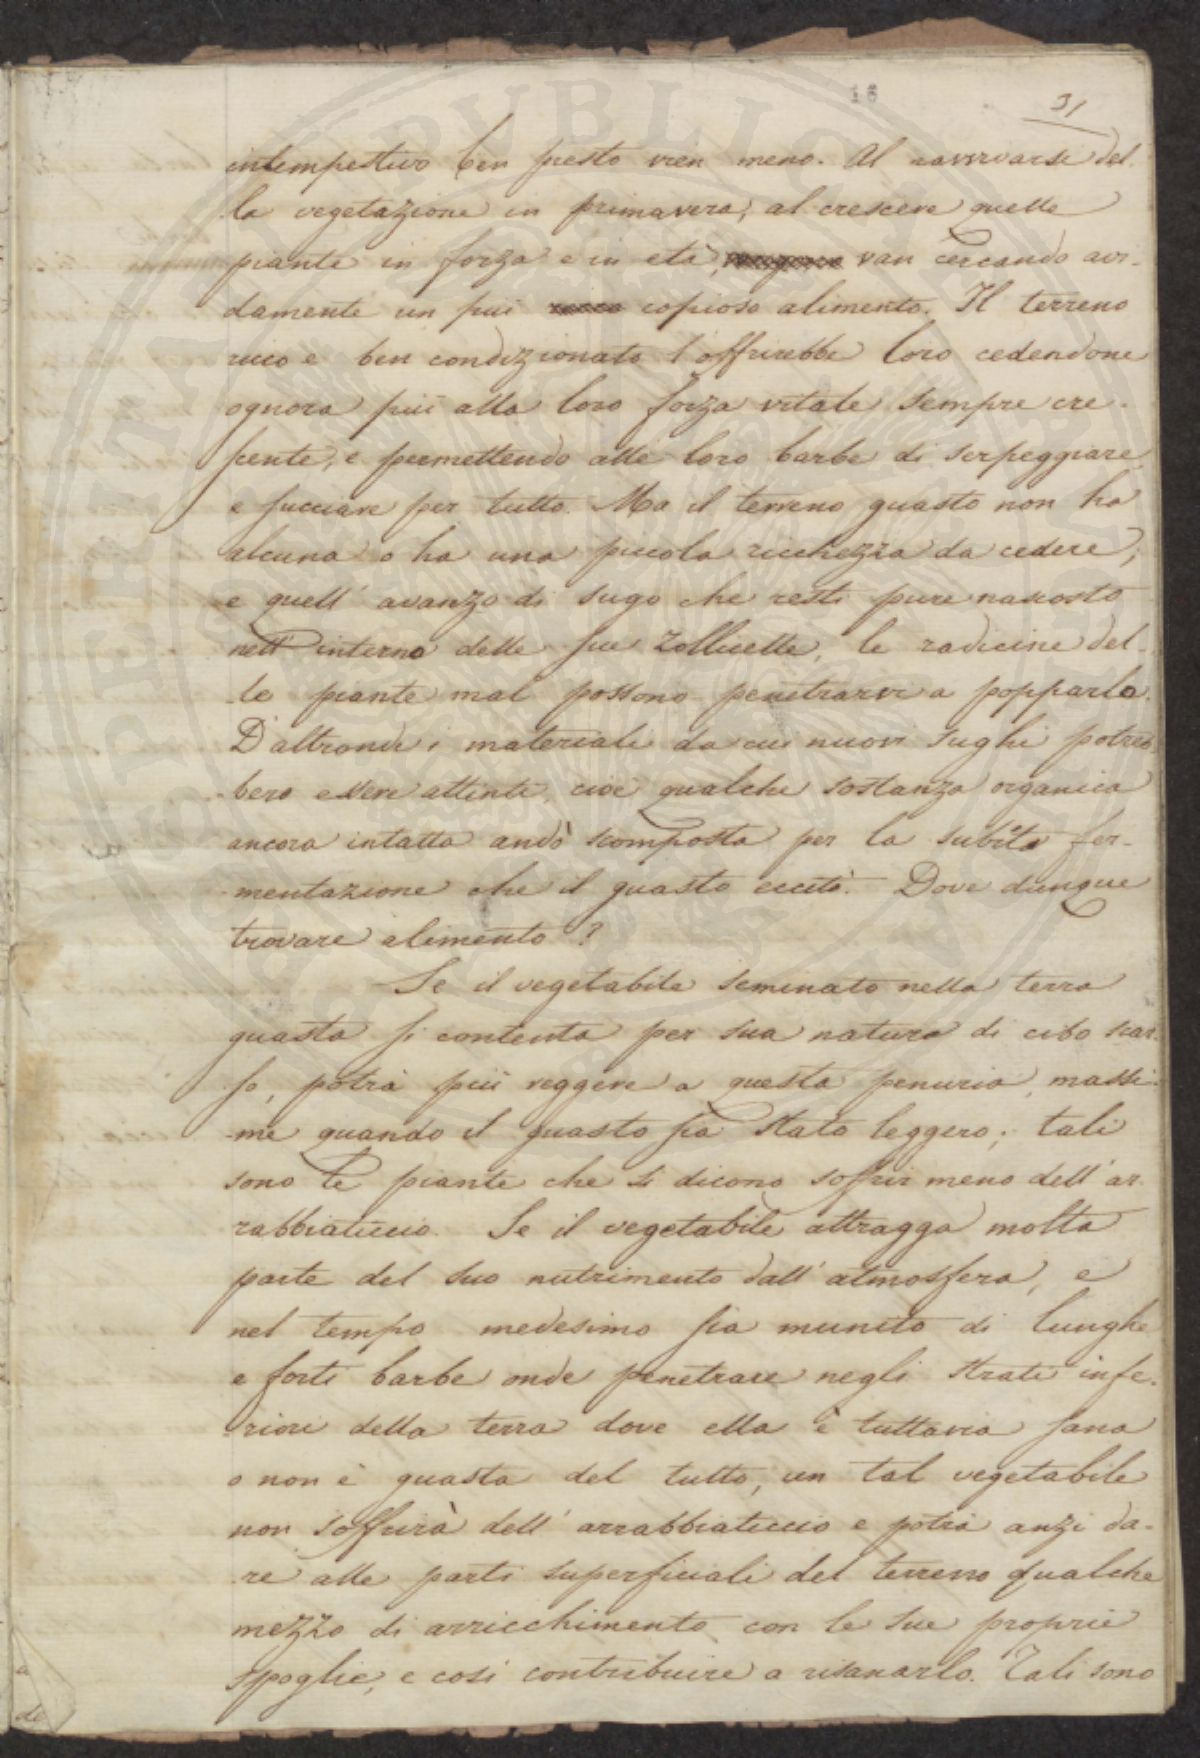 16
31
intempestivo ben presto vien meno. Al ravvivarsi del-
la vegetazione in primavera, al crescere quelle
piante in forza e in età, van cercando avi-
damente un più copioso alimento. Il terreno
ricco e ben condizionato l'offrirebbe loro cedendone
ognora più alla loro forza vitale sempre cre-
scente, e permettendo alle loro barbe di serpeggiare
e succiare per tutto. Ma il terreno guasto non ha
alcuna o ha una piccola ricchezza da cedere;
e quell'avanzo di sugo che resti pure nascosto
nell'interno delle sue zollicelle, le radicine del-
le piante mal possono penetrarvi a popparlo.
D'altronde i materiali da cui nuovi sughi potreb
bero essere attinti, cioè qualche sostanza organica
ancora intatta andò scomposta per la subita fer-
mentazione che il guasto eccitò. Dove dunque
trovare alimento?
Se il vegetabile seminato nella terra
guasta si contenta per sua natura di cibo scar-
so, potrà più reggere a questa penuria, massi-
me quando il guasto sia stato leggero; tali
sono le piante che si dicono soffrir meno dell'ar-
rabbiaticcio. Se il vegetabile attragga molta
parte del suo nutrimento dall'atmosfera, e
nel tempo medesimo sia munito di lunghe
e forti barbe onde penetrare negli strati infe-
riori della terra dove ella è tuttavia sana
o non è guasta del tutto, un tal vegetabile
non soffrirà dell'arrabbiaticcio e potrà anzi da-
re alle parti superficiali del terreno qualche
mezzo di arricchimento con le sue proprie
spoglie, e così contribuire a risanarlo. Tali sono